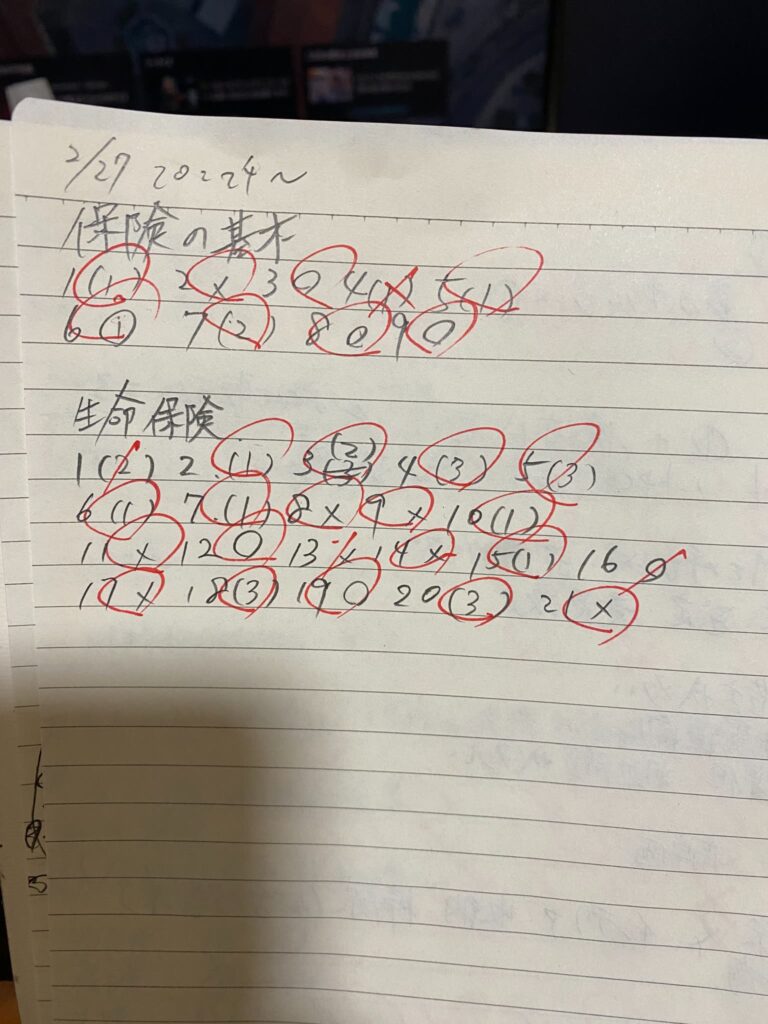 2/27 20:24〜
保険の基本
1(1) 2 × 3 ○ 4(1) 5(1)
6 ① 7(2) 8 ○ 9 ○
生命保険
1(2) 2.(1) 3(2) 4(3) 5(3)
6(1) 7.(1) 8 × 9 × 10(1)
11 × 12 ○ 13 × 14 × 15(1) 16 ○
17 × 18(3) 19 ○ 20(3) 21 ×